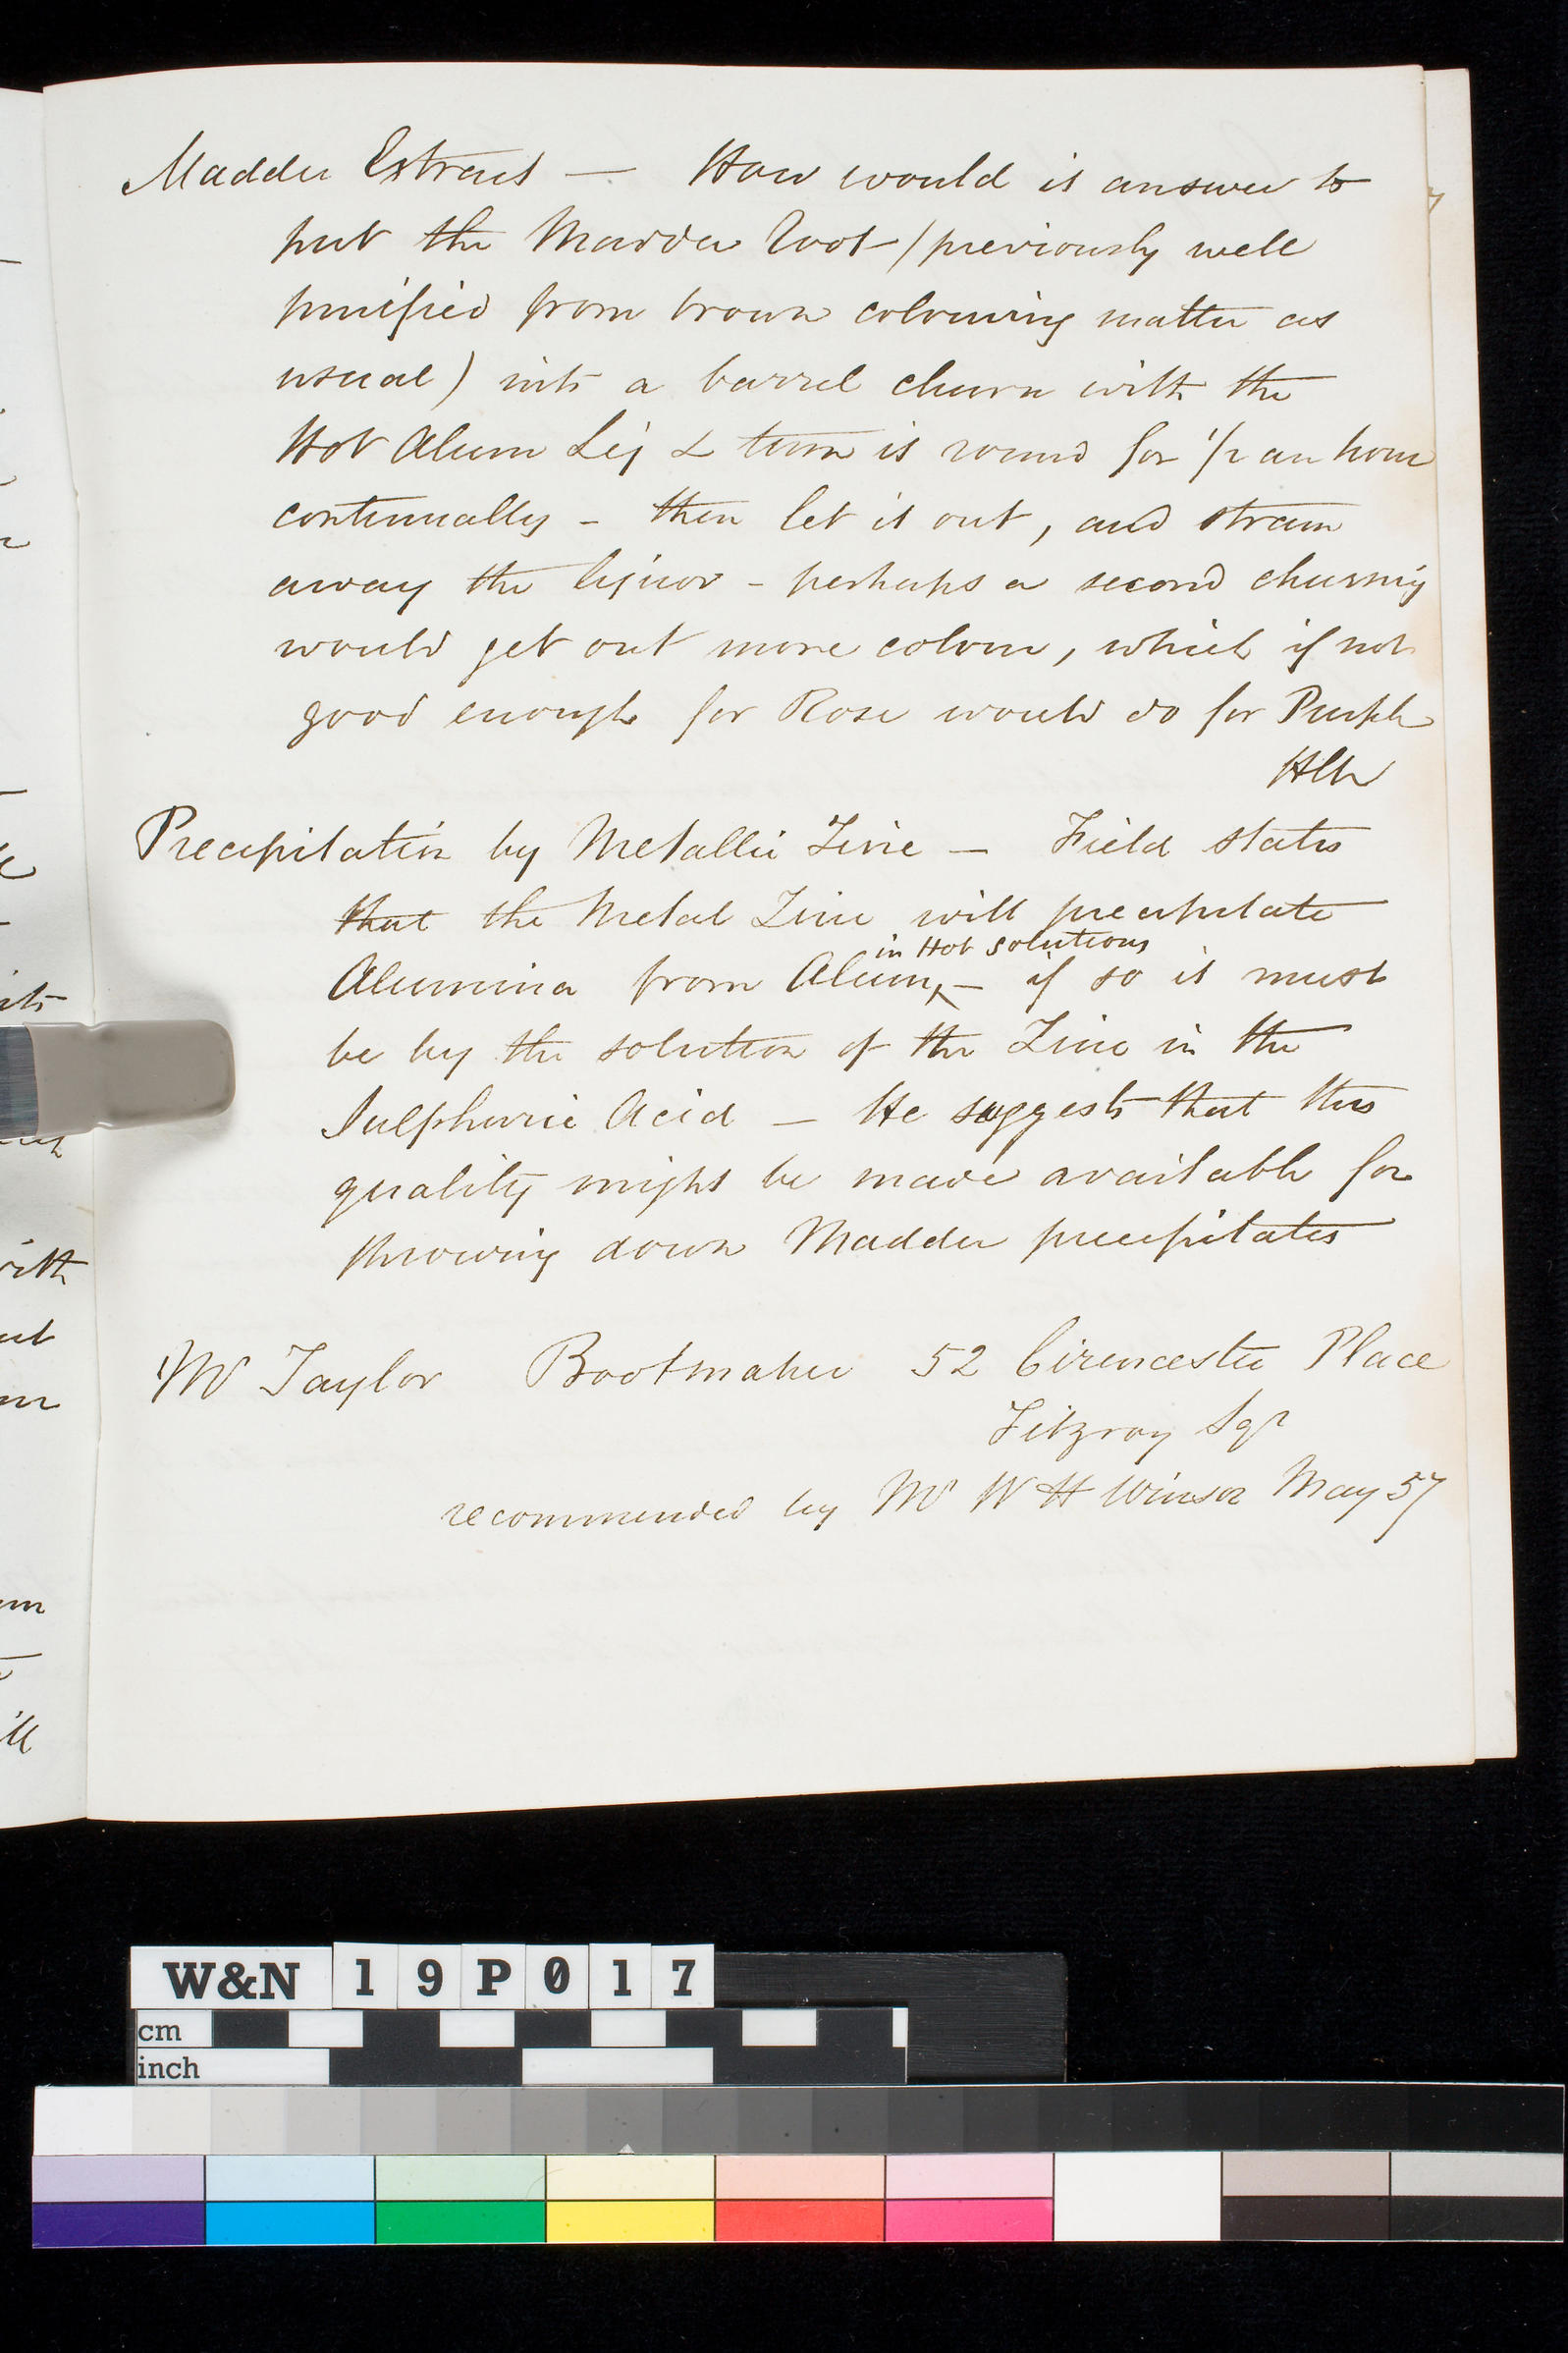 Madder Extract — How would it answer to
put the Madder Root (previously well
purified from brown colouring matter as
usual) into a barrel churn with the
Hot Alum Liq & turn it round for 1/2 an hour
continually - then let it out, and strain
away the liquor - perhaps a second churning
would get out more colour, which if not
good enough for Rose would do for Purple
Precipitation by Metallic Zinc — Field states
that the Metal Zinc will precipitate
in Hot solutions
Alumina from Alum, — if so it must
be by the solution of the Zinc in the
Sulphuric Acid — He suggests that this
quality might be made available for
throwing down Madder precipitates
Mr Taylor Bootmaker 52 Cirencester Place
Fitzroy Sqr
recommended by Mr W H Winsor May 57
W&N 19P017
cm
inch